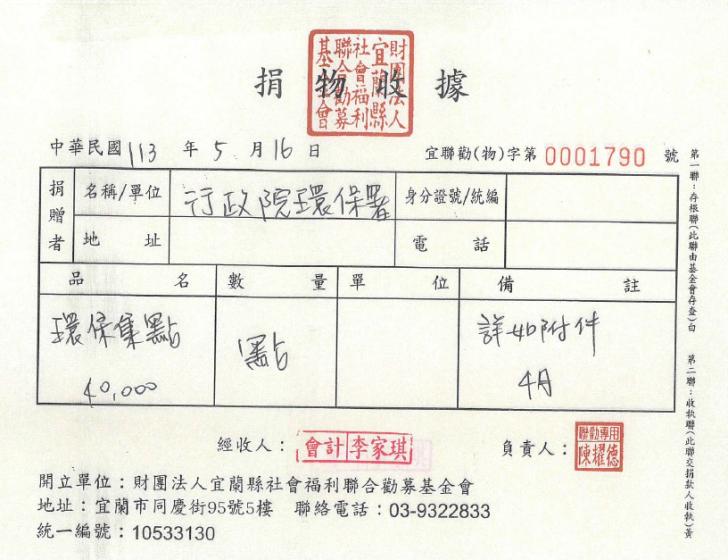 財團法人
宜蘭縣
社會福利
聯合勸募
基金會
捐物收據
中華民國 113 年 5 月 16 日
宜聯勸(物)字第 0001790 號
捐贈者
名稱/單位 行政院環保署 身分證號/統編
地址 電話
品名 數量 單位 備註
環保集點 點 詳如附件
40,000 4月
經收人： 會計 李家琪
負責人： 聯勸專用 陳耀德
開立單位：財團法人宜蘭縣社會福利聯合勸募基金會
地址：宜蘭市同慶街95號5樓 聯絡電話：03-9322833
統一編號：10533130
第一聯：存根聯(此聯由基金會存查)白
第二聯：收執聯(此聯交捐款人收執)黃